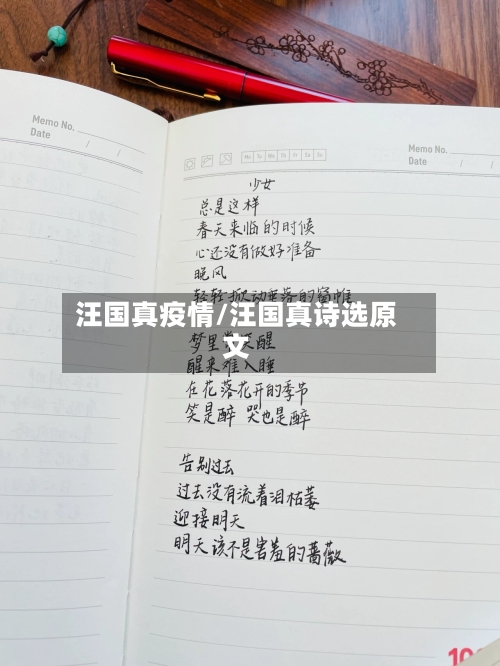 Memo No.
Date / /
Memo No.
Date / /
Mo Tu We Th Fr Sa Su
少女
总是这样
春天来临的时候
心还没有做好准备
晚风
轻轻掀动垂落的窗帷
汪国真疫情/汪国真诗选原
文
梦里 醒
醒来难入睡
在花落花开的季节
笑是醉 哭也是醉
告别过去
过去没有流着泪枯萎
迎接明天
明天该不是害羞的蔷薇